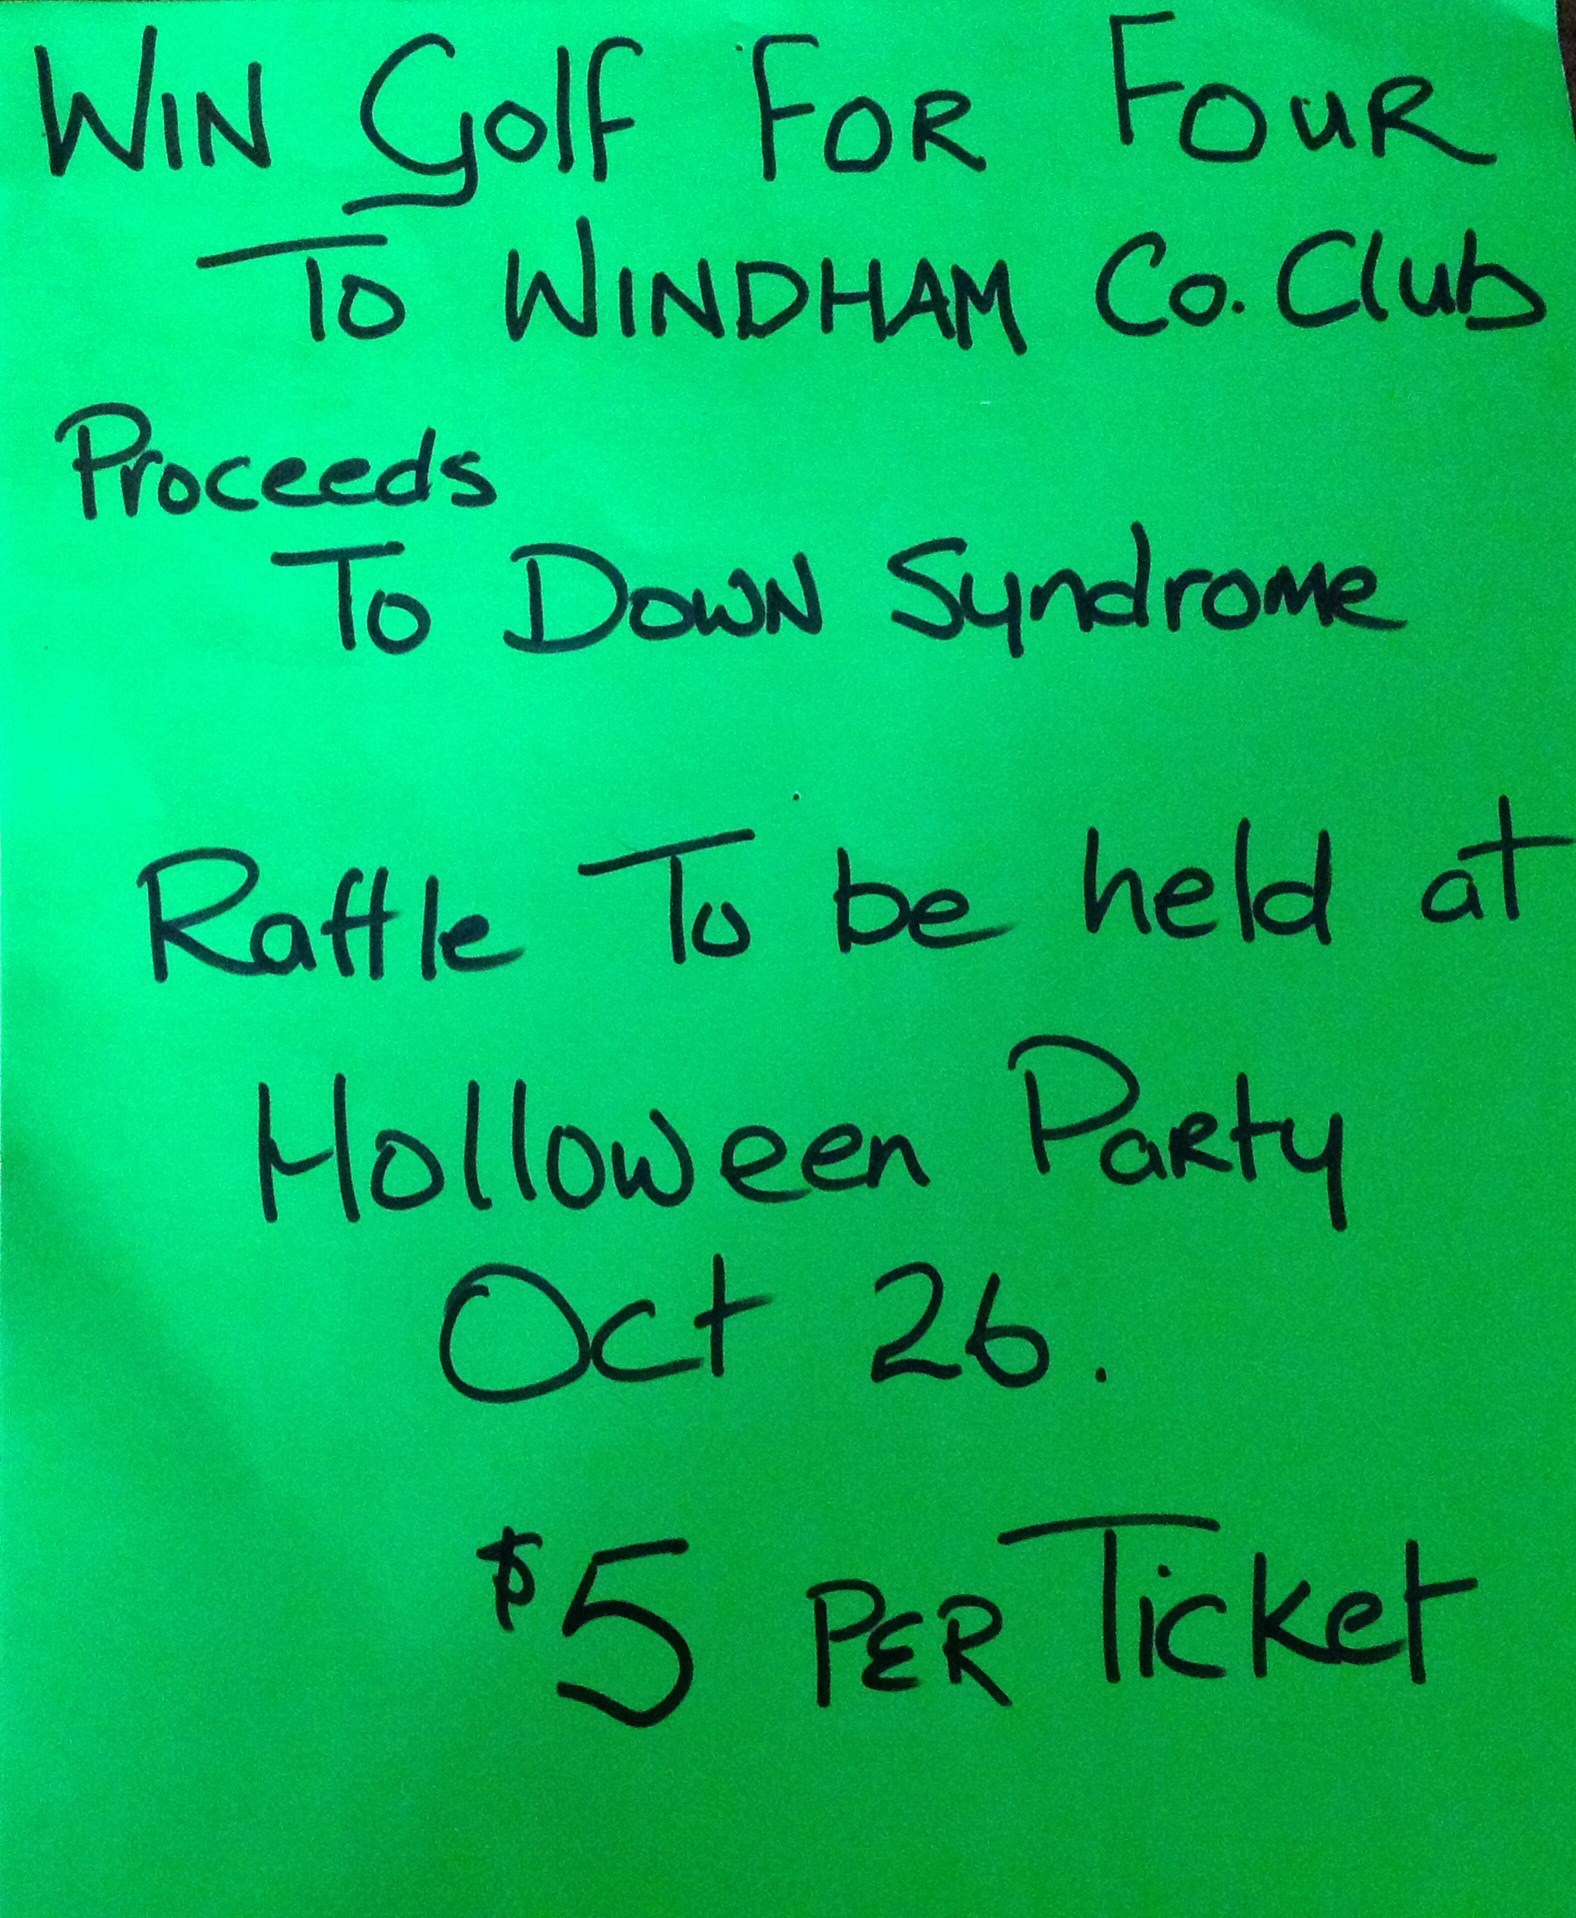 WIN Golf FOR FOUR
TO WINDHAM Co. Club
Proceeds
To Down Syndrome
Raffle To be held at
Holloween Party
Oct 26.
$5 PER Ticket